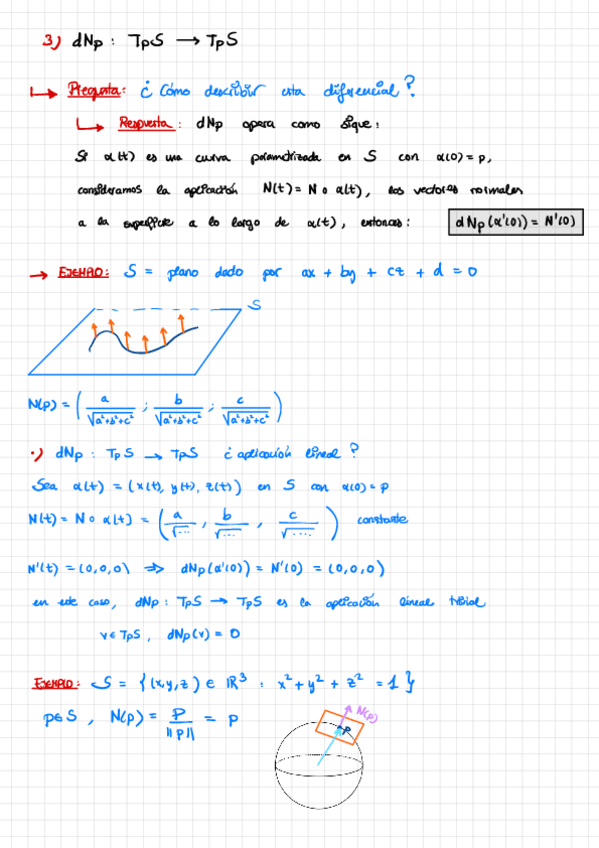 3) dNp : TpS → TpS
↳ Pregunta: ¿Cómo describir esta diferencial?
↳ Respuesta: dNp opera como sigue:
Si α(t) es una curva parametrizada en S con α(0) = p,
consideramos la aplicación N(t) = N ∘ α(t), los vectores normales
a la superficie a lo largo de α(t), entonces: dNp(α'(0)) = N'(0)
→ EJEMPLO: S = plano dado por ax + by + cz + d = 0
S
N(p) = ( a/√(a²+b²+c²) ; b/√(a²+b²+c²) ; c/√(a²+b²+c²) )
•) dNp : TpS → TpS ¿aplicación lineal?
Sea α(t) = (x(t), y(t), z(t)) en S con α(0) = p
N(t) = N ∘ α(t) = ( a/√... , b/√... , c/√.... ) constante
N'(t) = (0,0,0) ⇒ dNp(α'(0)) = N'(0) = (0,0,0)
en este caso, dNp : TpS → TpS es la aplicación lineal trivial
v ∈ TpS , dNp(v) = 0
EJEMPLO: S = {(x,y,z) ∈ ℝ³ : x² + y² + z² = 1}
p∈S , N(p) = p/||p|| = p
N(p)
p